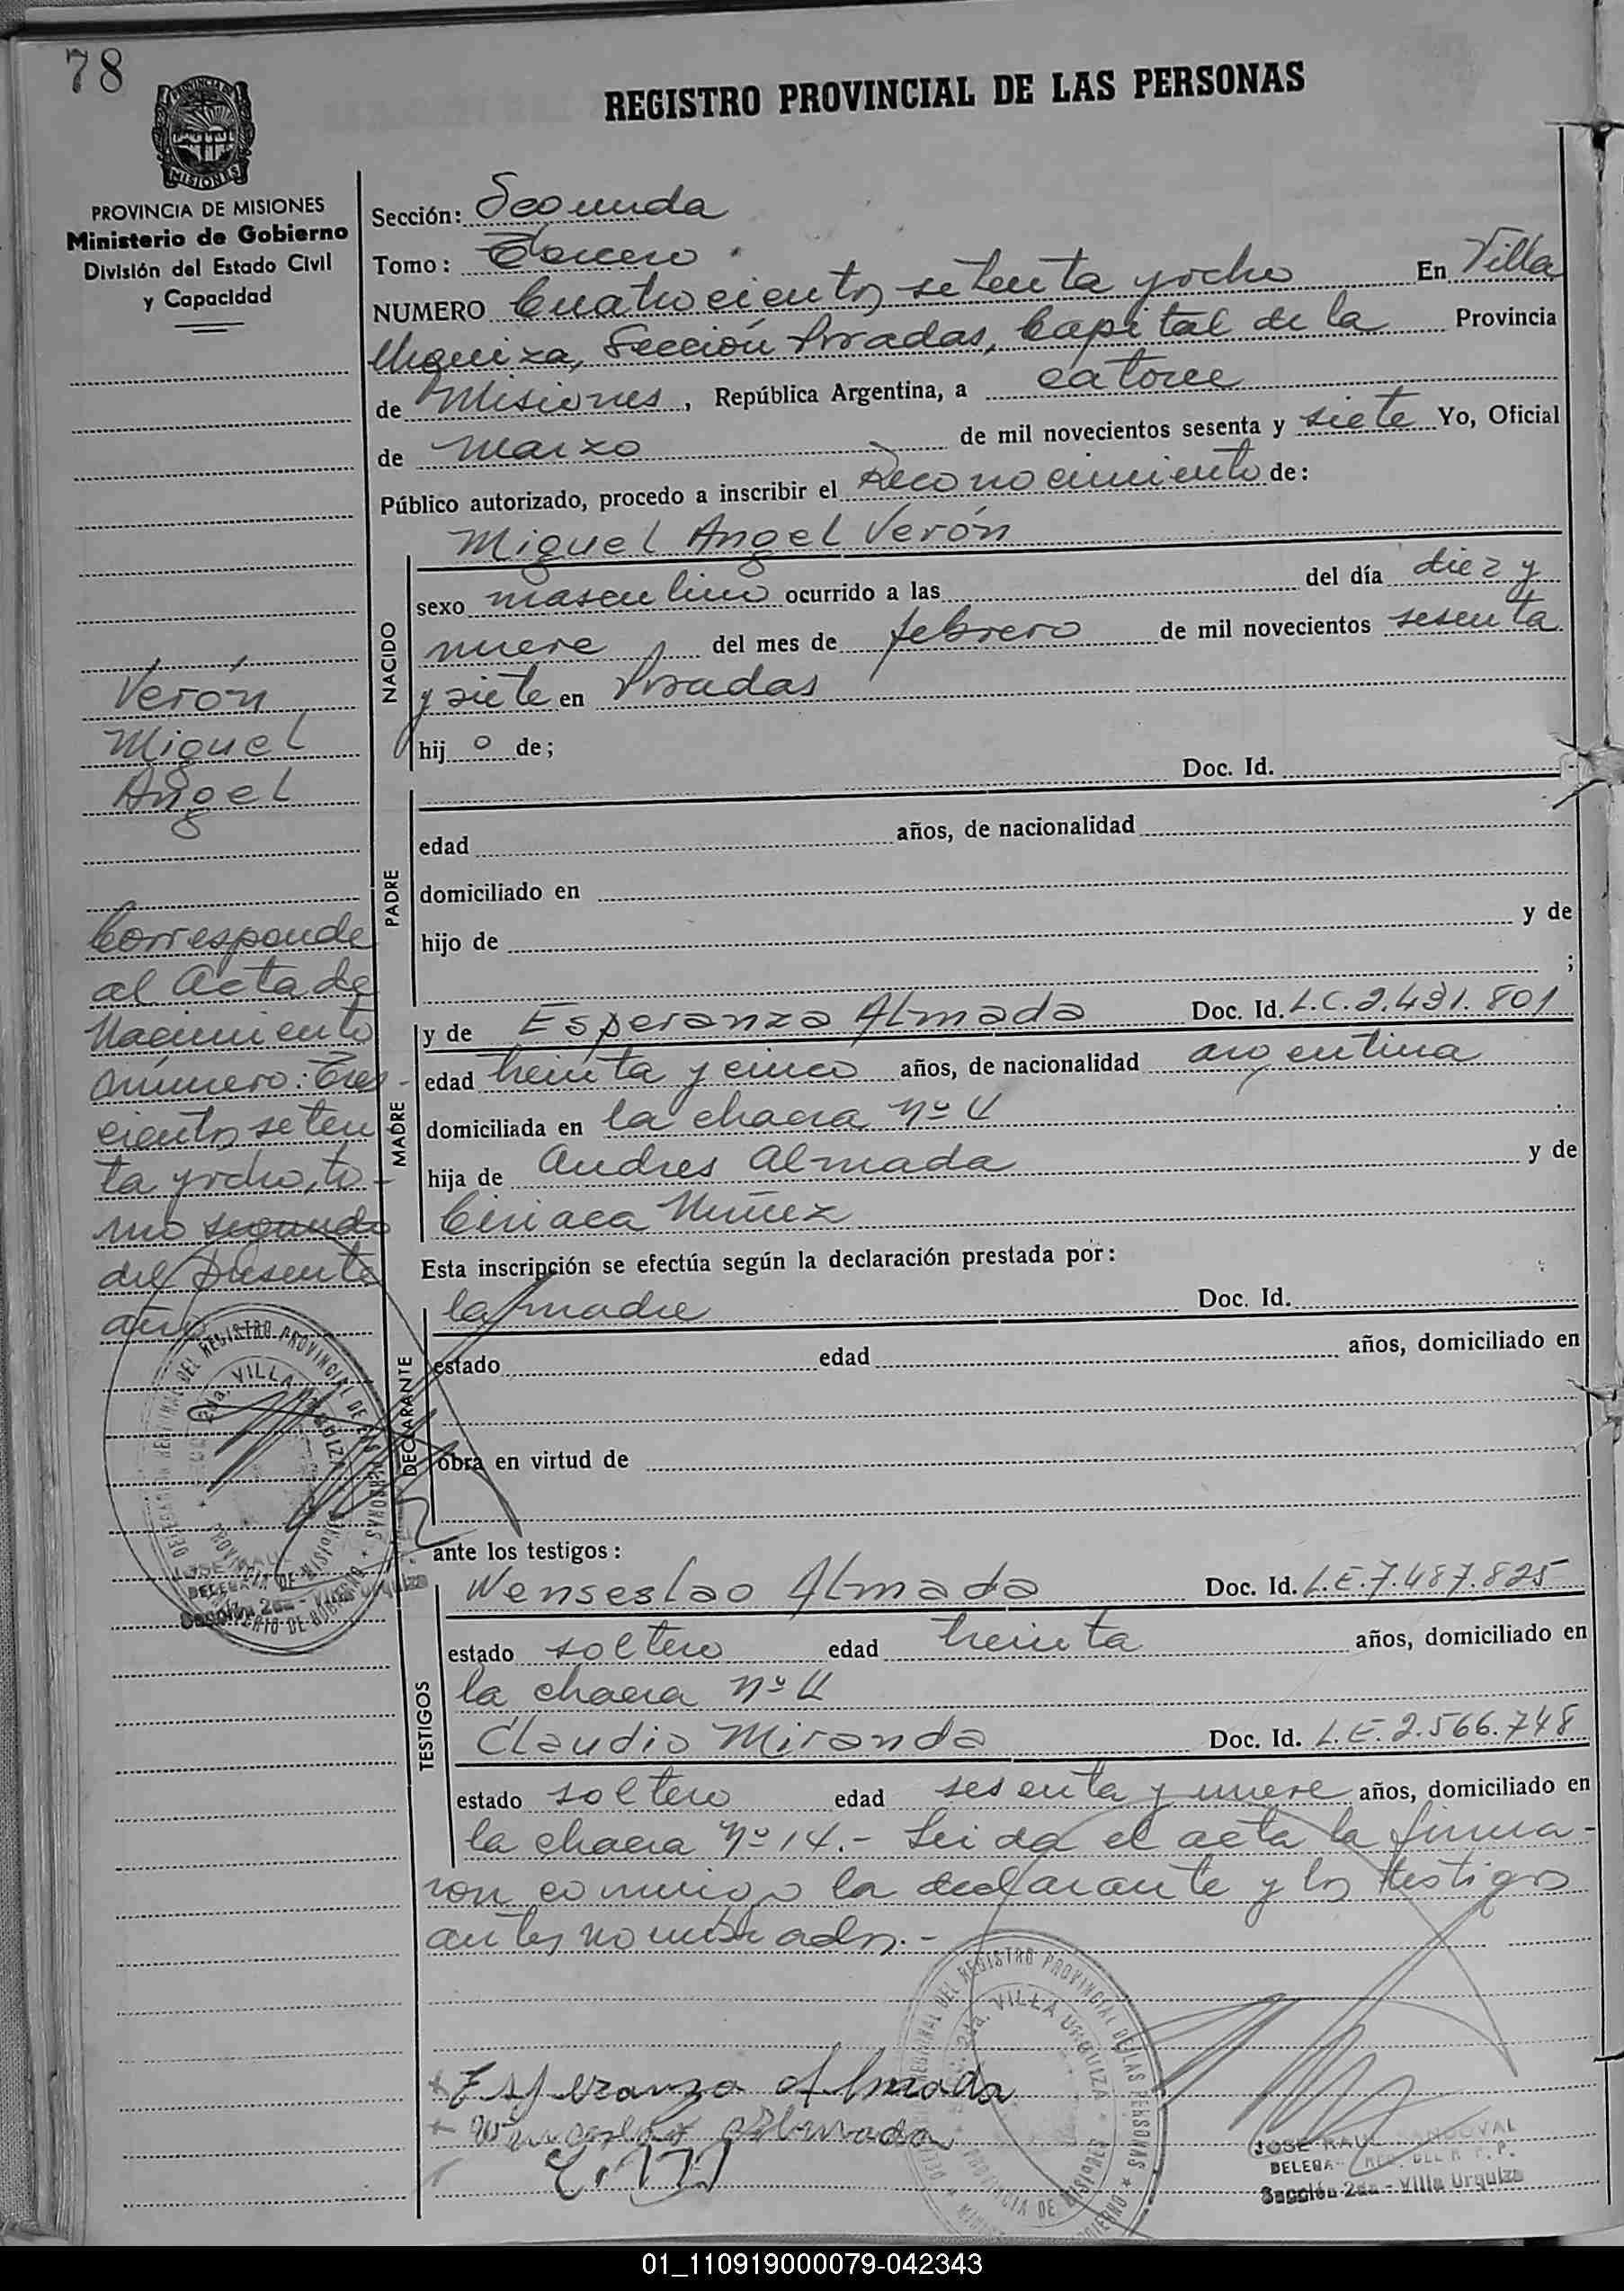 78
REGISTRO PROVINCIAL DE LAS PERSONAS
MISIONES
PROVINCIA DE MISIONES
Ministerio de Gobierno
División del Estado Civil
y Capacidad
Sección: Segunda
Tomo: Tercero
NUMERO Cuatrocientos setenta y ocho En Villa
Urquiza, Sección Posadas, Capital de la Provincia
de Misiones, República Argentina, a catorce
de marzo de mil novecientos sesenta y siete Yo, Oficial
Público autorizado, procedo a inscribir el Reconocimiento de:
Miguel Angel Verón
NACIDO
sexo masculino ocurrido a las del día diez y
nueve del mes de febrero de mil novecientos sesenta
y siete en Posadas
hijo de;
Verón
Miguel
Angel
PADRE
Doc. Id.
edad años, de nacionalidad
domiciliado en
hijo de y de
;
Corresponde
al Acta de
Nacimiento
número: Tres-
cientos seten
ta y ocho, to-
mo segundo
del presente
año
MADRE
y de Esperanza Almada Doc. Id. L.C. 2.431.801
edad treinta y cinco años, de nacionalidad argentina
domiciliada en la chacra Nº 4
hija de Andres Almada y de
Ciriaca Nuñez
Esta inscripción se efectúa según la declaración prestada por:
DECLARANTE
la madre Doc. Id.
estado edad años, domiciliado en
obra en virtud de
DEL REGISTRO PROVINCIAL DE LAS PERSONAS
2da. VILLA URQUIZA
PROVINCIA DE MISIONES
JOSE RAUL
Sección 2da - Villa Urquiza
ante los testigos:
TESTIGOS
Wenseslao Almada Doc. Id. L.E. 7.487.825
estado soltero edad treinta años, domiciliado en
la chacra Nº 4
Claudio Miranda Doc. Id. L.E. 2.566.748
estado soltero edad sesenta y nueve años, domiciliado en
la chacra Nº 14.- Leida el acta la firma-
ron conmigo la declarante y los testigos
antes nombrados.-
DEL REGISTRO PROVINCIAL DE LAS PERSONAS
2da. VILLA URQUIZA
PROVINCIA DE MISIONES
Esperanza Almada
Almada
JOSE RAUL SANDOVAL
DELEGA REG. DEL R. P. P.
Sección 2da - Villa Urquiza
01_110919000079-042343